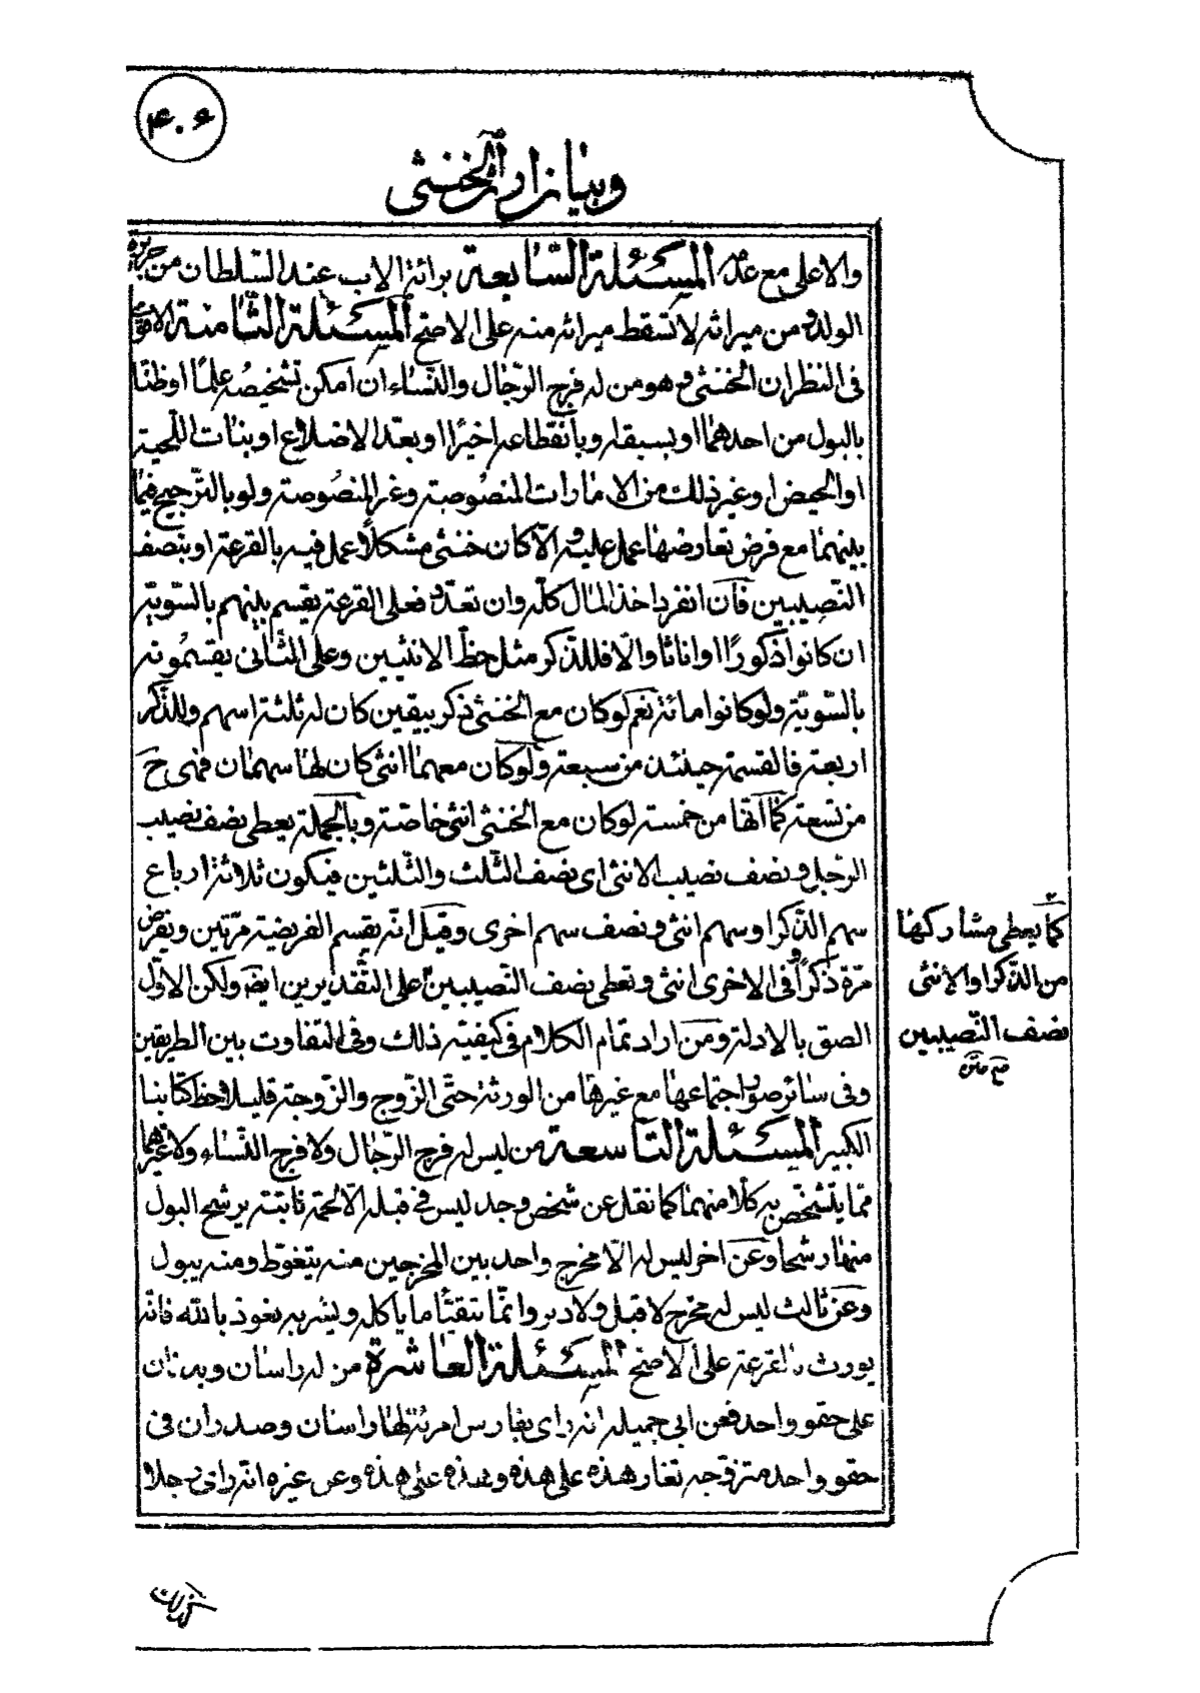 ۴۰۶
وبيان ارث الخنثى
والاعلى مع عدمه المسئلة السّابعة برائة الاب عند السّلطان من جريرة
الولد و من ميراثه لا تسقط ميراثه منه على الاصحّ المسئلة الثّامنة الاقوى
فى النظران الخنثى و هو من له فرج الرّجال والنّساء ان امكن تشخيصه علمًا او ظنّا
بالبول من احدهما او بسبقه او بانقطاعه اخيرًا او بعدّ الاضلاع او بنبات اللّحية
او الحيض او غير ذلك من الامارات المنصوصة و غير المنصوصة ولو بالتّرجيح فيما
بينهما مع فرض تعارضها عمل عليه و الّا كان خنثى مشكلًا عمل فيه بالقرعة او بنصف
النّصيبين فان انفرد اخذ المال كلّه وان تعدّد فعلى القرعة يقسم بينهم بالسّويّة
ان كانوا ذكورًا او اناثا والّا فللذّكر مثل حظّ الانثيين وعلى الثّانى يقسمونه
بالسّويّة ولو كانوا مائة نعم لو كان مع الخنثى ذكر بيقين كان له ثلثة اسهم وللذّكر
اربعة فالقسمة حينئذ من سبعة ولو كان معهما انثى كان لها سهمان فهى ح
من تسعة كما انّها من خمسة لو كان مع الخنثى انثى خاصّة وبالجملة يعطى نصف نصيب
الرّجل و نصف نصيب الانثى اى نصف الثّلث والثّلثين فيكون ثلاثة ارباع
سهم الذّكر او سهم انثى و نصف سهم اخرى وقيل انّه يقسم الفريضة مرّتين ويفرض
مرّة ذكرًا و فى الاخرى انثى و تعطى نصف النّصيبين على التّقديرين ايضا ولكن الاوّل
الصق بالادلة ومن اراد تمام الكلام فى كيفيّة ذلك وفى التّفاوت بين الطريقين
وفى سائر صور اجتماعها مع غيرها من الورثة حتّى الزّوج والزّوجة فليلاحظ كتابنا
الكبير المسئلة التّاسعة من ليس له فرج الرّجال ولا فرج النّساء ولا غيرهما
ممّا يتشخّص به كلّا منهما كما نقل عن شخص وجد ليس فى قبله الّا لحمة نابتة يرشح البول
منها رشحا وعن اخر ليس له الّا مخرج واحد بين المخرجين منه يتغوّط ومنه يبول
وعن ثالث ليس له مخرج لا قبل ولا دبر وانّما يتقيّأ ما ياكله و يشربه نعوذ بالله فانّه
يورث بالقرعة على الاصحّ المسئلة العاشرة من له راسان و بدنان
على حقو واحد فعن ابى جميله انه راى بفارس امرئة لها راسان وصدران فى
حقو واحد متزوّجة تغار هذه على هذه و هذه على هذه و عن غيره انّه راى رجلا
كما يعطى مشاركها
من الذّكر او الانثى
نصف النّصيبين